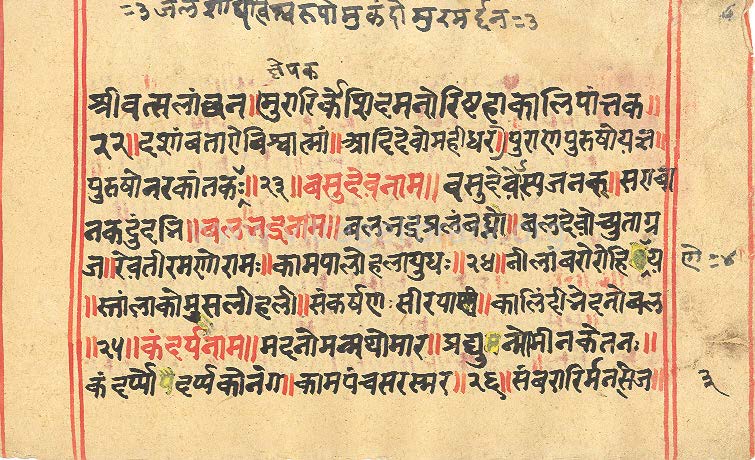 =३ जलशायी विश्वरूपो मुकुंदो मुरमर्द्दन =३
क्षेपक
श्रीवत्सलांछन॥मुरारिर्केशिदमनोरिष्टहाकालिपांतक॥
२२॥दशांवतारोविश्वात्मां॥आदिदेवोमहीधरो॥पुराणपुरुषोयज्ञ
पुरुषोनरकांतकः॥२३॥बसुदेवनाम॥बसुदेवोस्यजनक॥सएवा
नकदुंदभि॥बलभद्रनाम॥बलभद्रप्रलंबघ्नो॥बलदेवोच्युताग्र
ज॥रेवतीरमणोरामः॥कामपालोहलायुधः॥२४॥नीलांबरोरौहिणेय हौ=४
॥स्तांलाकोमुसलीहली॥संकर्षण सीरपाणी॥कालिंदीभेदनोबल
॥२५॥कंदर्पनाम॥मदनोमन्मथोमार॥प्रद्युम्नोमीनकेतनः॥
कंदर्प्पो दर्प्पकोनंग॥कामपंचसरस्मर॥२६॥संबरारिर्मनसिज॥ ३